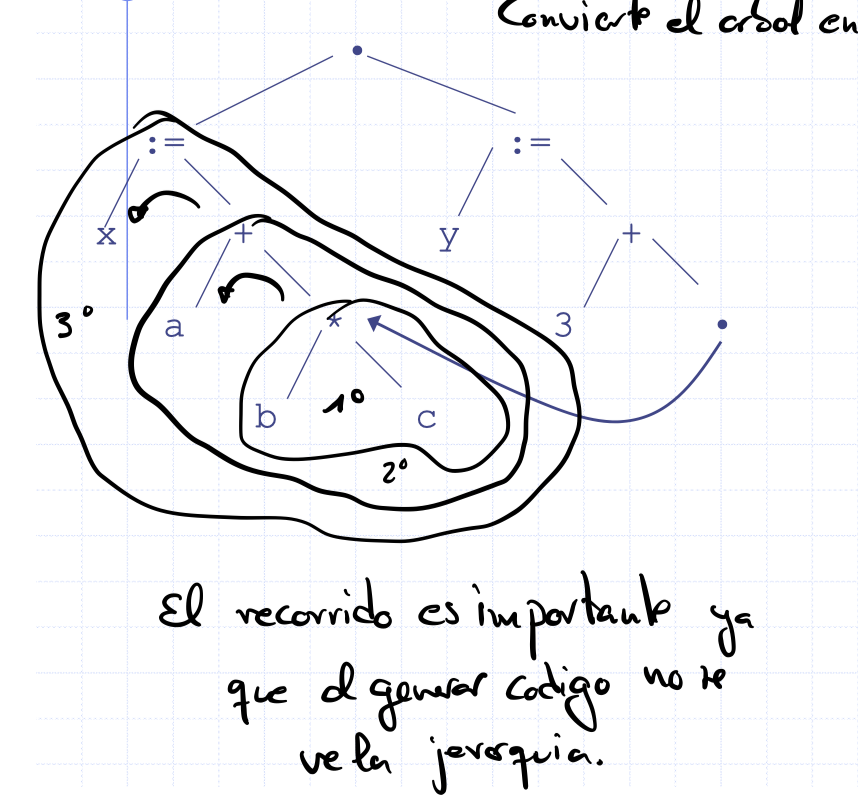 Convierte el arbol en
:= :=
x + y +
3º a * 3
b 1º c
2º
El recorrido es importante ya
que al generar codigo no se
ve la jerarquia.